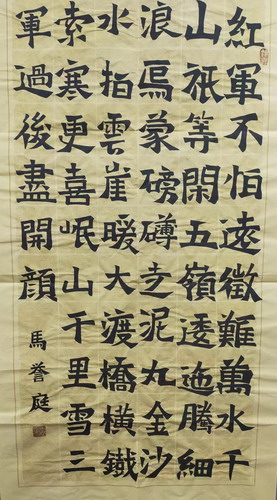 紅軍不怕遠徵難萬水千
山祇等閑五嶺逶迤騰細
浪烏蒙磅礴走泥丸金沙
水拍雲崖暖大渡橋橫鐵
索寒更喜岷山千里雪三
軍過後盡開顏
馬誉庭